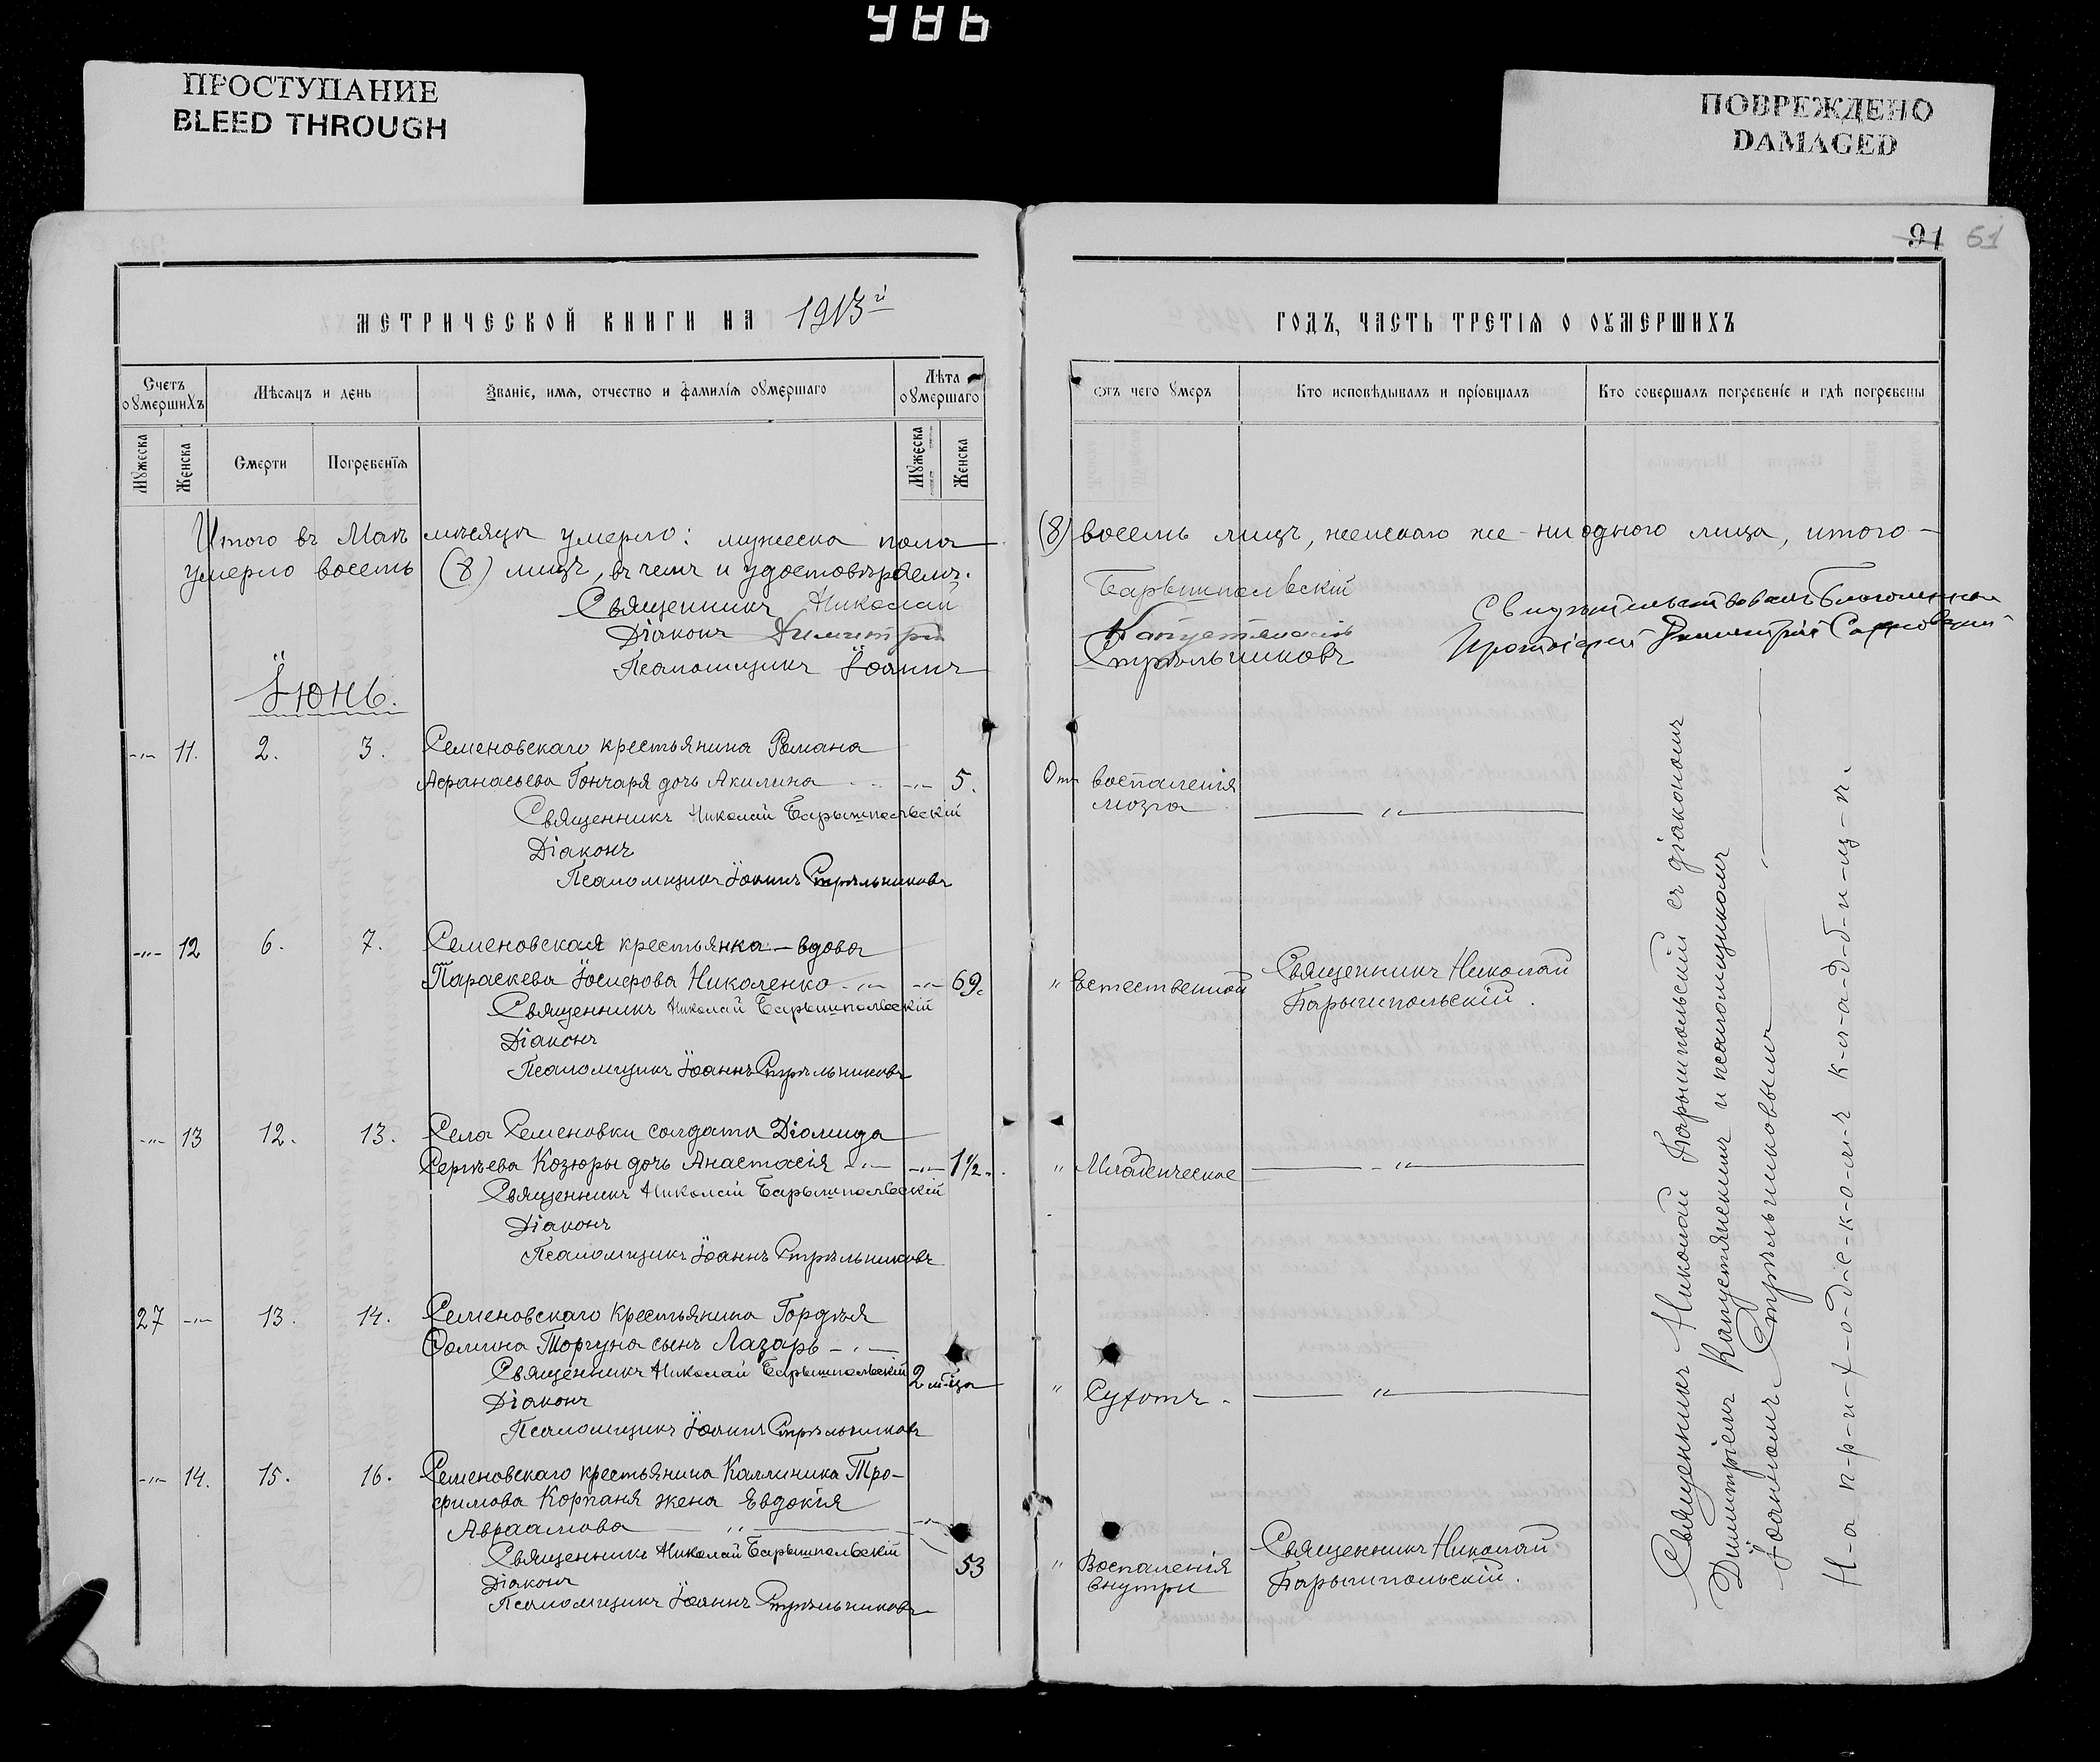 986
ПРОСТУПАНИЕ
BLEED THROUGH
ПОВРЕЖДЕНО
DAMAGED
91 61
МЕТРИЧЕСКОЙ КНИГИ НА 1913й
ГОДЪ, ЧАСТЬ ТРЕТІѦ О ОУМЕРШИХЪ
Счетъ оумершихъ
Мѣсѧцъ и день
Званіе, имѧ, отчество и фамиліѧ оумершаго
Лѣта оумершаго
Мужеска
Женска
Смерти
Погребеніѧ
Мужеска
Женска
Ѿтъ чего оумеръ
Кто исповѣдывалъ и пріобщалъ
Кто совершалъ погребеніе и гдѣ погребены
Итого въ Маѣ мѣсяцѣ умерло: мужеска пола (8) восемь лицъ, женскаго же ни одного лица, итого -
умерло восемь (8) лицъ, въ чемъ и удостовѣряемъ.
Священникъ Николай Барышпольскій
Діаконъ Димитрій Капустянскій
Псаломщикъ Іоаннъ Стрѣльниковъ
Свидѣтельствовалъ Благочинный
Протоіерей Димитрій
Іюнь.
-„- 11. 2. 3. Семеновскаго крестьянина Романа
Афанасьева Гончаря дочь Акилина -„- 5. Отъ воспаленія
мозга -„-
Священникъ Николай Барышпольскій
Діаконъ
Псаломщикъ Іоаннъ Стрѣльниковъ
-„- 12 6. 7. Семеновская крестьянка - вдова
Параскева Іосифова Николенко -„- -„- 69. „ Естественной Священникъ Николай
Барышпольскій.
Священникъ Николай Барышпольскій
Діаконъ
Псаломщикъ Іоаннъ Стрѣльниковъ
-„- 13 12. 13. Села Семеновки солдата Діомида
Сергѣева Козюры дочь Анастасія -„- -„- 1 1/2. „ Младенческое -„-
Священникъ Николай Барышпольскій
Діаконъ
Псаломщикъ Іоаннъ Стрѣльниковъ
27 -„- 13. 14. Семеновскаго крестьянина Гордѣя
Ѳомина Торгуна сынъ Лазарь -„-
Священникъ Николай Барышпольскій 2 м-ца „ Сухотъ. -„-
Діаконъ
Псаломщикъ Іоаннъ Стрѣльниковъ
-„- 14. 15. 16. Семеновскаго крестьянина Каллиника Тро-
фимова Корпаня жена Евдокія
Авраамова -„- -„-
Священникъ Николай Барышпольскій 53 „ Воспаленія
внутри Священникъ Николай
Барышпольскій.
Діаконъ
Псаломщикъ Іоаннъ Стрѣльниковъ
Священникъ Николай Барышпольскій съ діакономъ
Димитріемъ Капустянскимъ и псаломщикомъ
Іоанномъ Стрѣльниковымъ
Н-а п-р-и-х-о-д-с-к-о-м-ъ к-л-а-д-б-и-щ-ѣ.